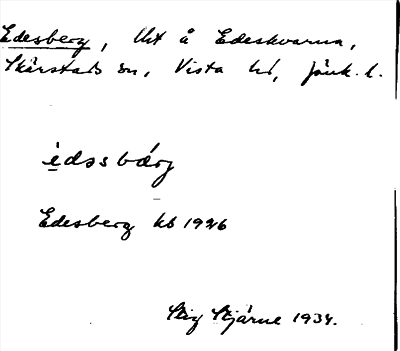 Edesberg, lht å Edeskvarna,
Skärstads sn, Vista hd, Jönk. l.
èdəsbærj
Edesberg kb 1926
Stig Stjärne 1934.